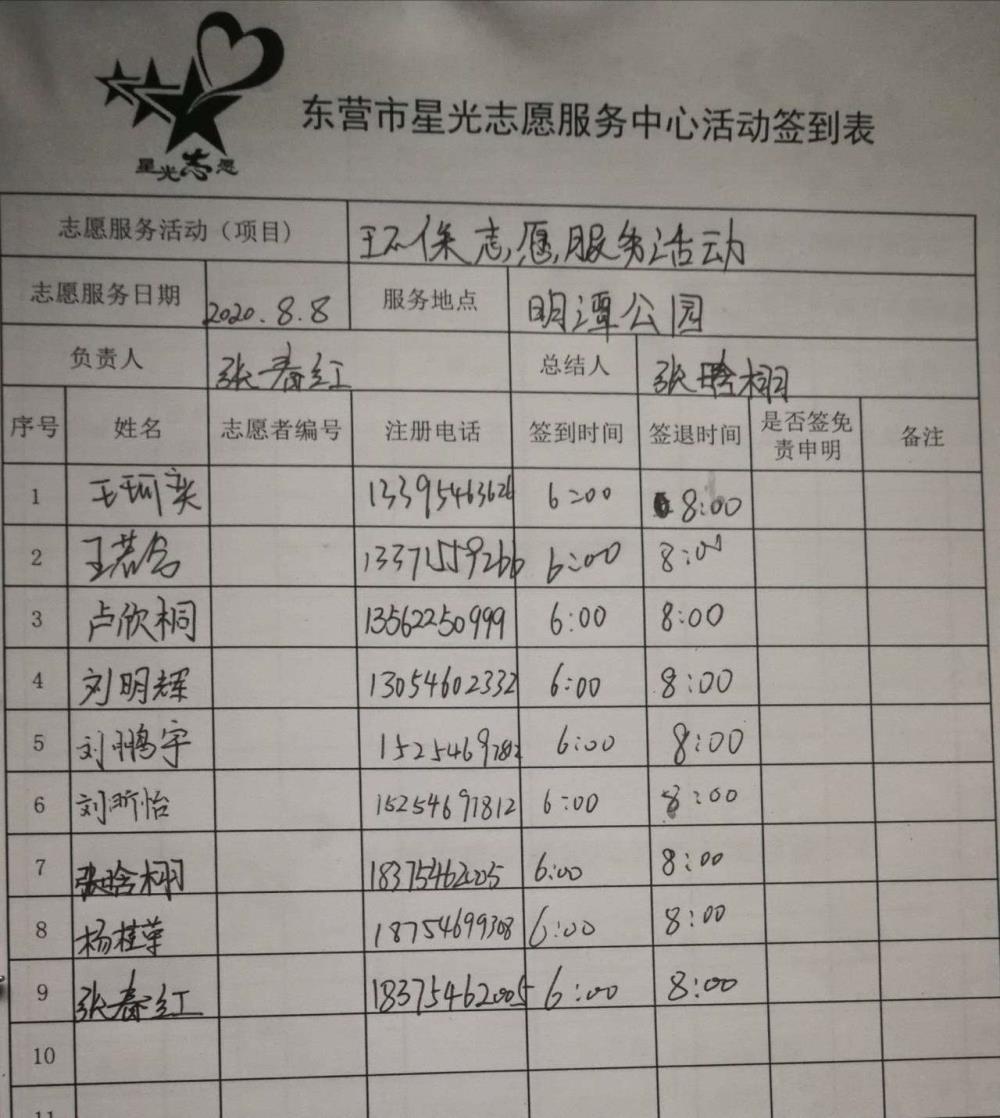 星光志愿
东营市星光志愿服务中心活动签到表
志愿服务活动（项目） 环保志愿服务活动
志愿服务日期 2020.8.8 服务地点 明潭公园
负责人 张春红 总结人 张晗栩
序号 姓名 志愿者编号 注册电话 签到时间 签退时间 是否签免责申明 备注
1 王珂奕 13395463626 6:00 8:00
2 王若含 13371559266 6:00 8:00
3 卢欣桐 13562250999 6:00 8:00
4 刘明辉 13054602332 6:00 8:00
5 刘鹏宇 15254691812 6:00 8:00
6 刘昕怡 15254691812 6:00 8:00
7 张晗栩 18375462005 6:00 8:00
8 杨桂苹 18754699308 6:00 8:00
9 张春红 18375462005 6:00 8:00
10
11